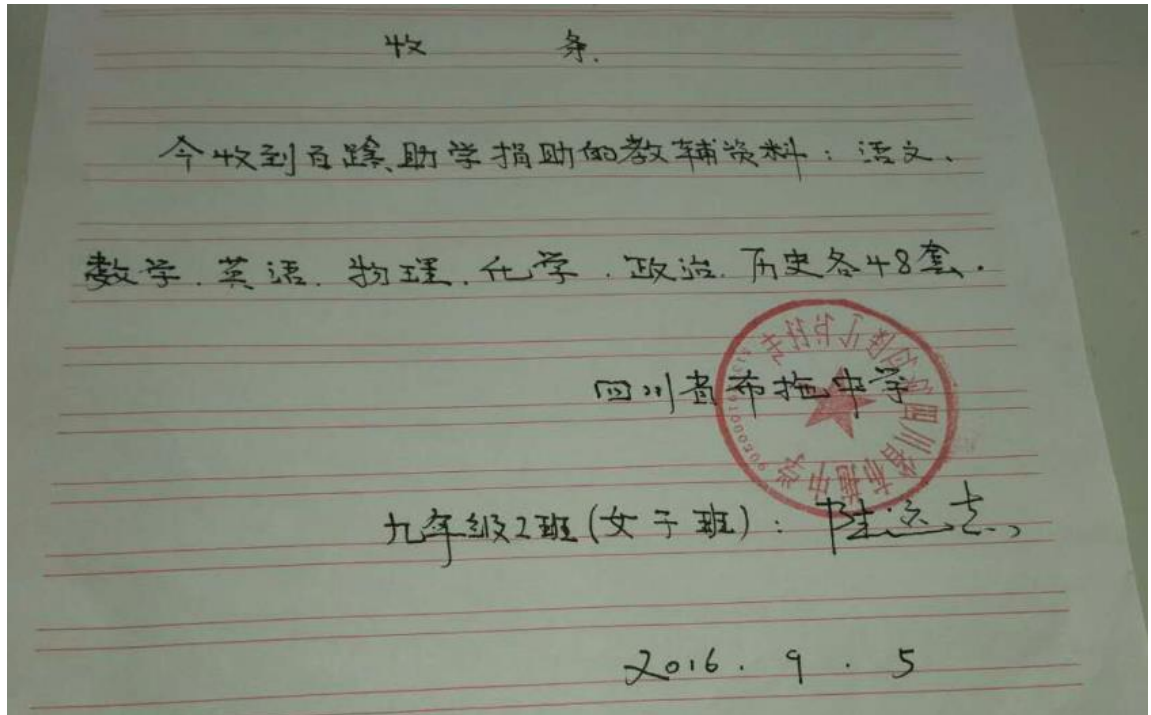 收 条.
今收到百蹊助学捐助的教辅资料：语文、
数学.英语.物理.化学.政治.历史各48套.
四川省布拖中学
四川省布拖中学
九年级2班(女子班)：陆远志
2016.9.5